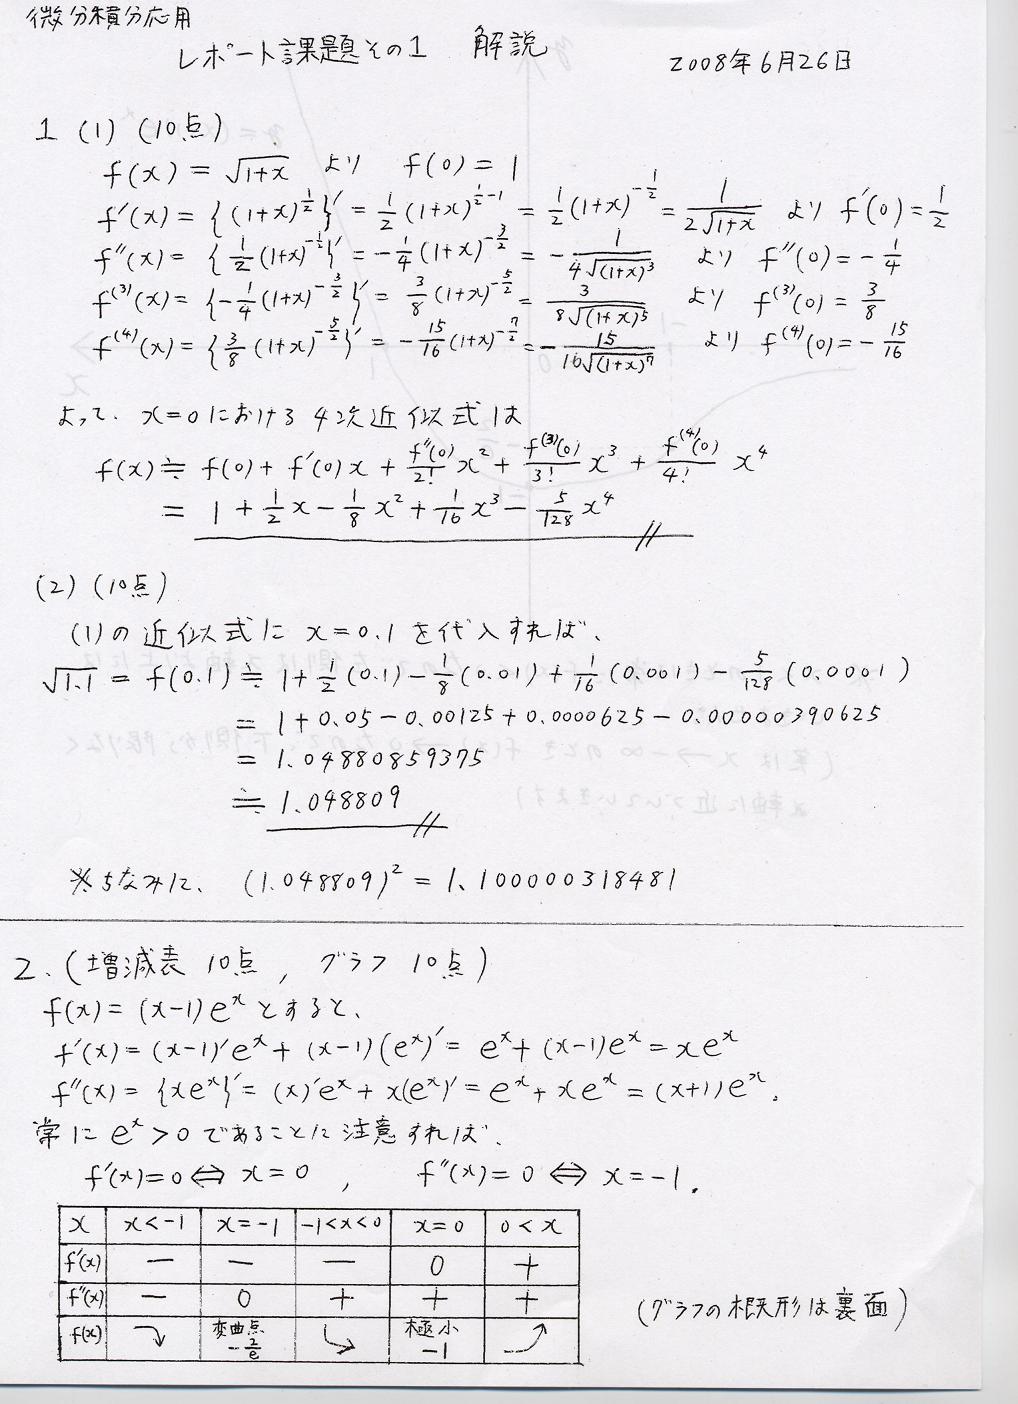 微分積分応用
レポート課題その1 解説
2008年6月26日
1 (1) (10点)
f(x) = √(1+x) より f(0) = 1
f'(x) = {(1+x)^{1/2}}' = 1/2 (1+x)^{1/2-1} = 1/2 (1+x)^{-1/2} = 1/(2√(1+x)) より f'(0) = 1/2
f''(x) = {1/2 (1+x)^{-1/2}}' = -1/4 (1+x)^{-3/2} = -1/(4√(1+x)^3) より f''(0) = -1/4
f^{(3)}(x) = {-1/4 (1+x)^{-3/2}}' = 3/8 (1+x)^{-5/2} = 3/(8√(1+x)^5) より f^{(3)}(0) = 3/8
f^{(4)}(x) = {3/8 (1+x)^{-5/2}}' = -15/16 (1+x)^{-7/2} = -15/(16√(1+x)^7) より f^{(4)}(0) = -15/16
よって、x=0における4次近似式は
f(x) ≒ f(0) + f'(0)x + f''(0)/2! x^2 + f^{(3)}(0)/3! x^3 + f^{(4)}(0)/4! x^4
= 1 + 1/2 x - 1/8 x^2 + 1/16 x^3 - 5/128 x^4
(2) (10点)
(1)の近似式に x=0.1 を代入すれば、
√1.1 = f(0.1) ≒ 1 + 1/2 (0.1) - 1/8 (0.01) + 1/16 (0.001) - 5/128 (0.0001)
= 1 + 0.05 - 0.00125 + 0.0000625 - 0.00000390625
= 1.04880859375
≒ 1.048809
※ちなみに、 (1.048809)^2 = 1.100000318481
2. (増減表 10点, グラフ 10点)
f(x) = (x-1)e^x とすると、
f'(x) = (x-1)'e^x + (x-1)(e^x)' = e^x + (x-1)e^x = xe^x
f''(x) = {xe^x}' = (x)'e^x + x(e^x)' = e^x + xe^x = (x+1)e^x.
常に e^x > 0 であることに注意すれば、
f'(x)=0 ⇔ x=0 , f''(x)=0 ⇔ x=-1.
x x<-1 x=-1 -1<x<0 x=0 0<x
f'(x) − − − 0 +
f''(x) − 0 + + +
f(x) 変曲点 -2/e 極小 -1
(グラフの概形は裏面)